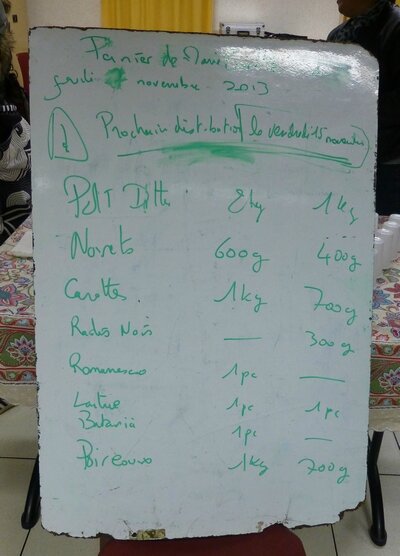 Panier de
jeudi novembre 2013
Prochain distribution le vendredi 15 novembre
Petit 2kg 1kg
Navets 600g 400g
Carottes 1kg 700g
Radis Noirs — 300g
Romanesco 1pc —
Laitue 1pc 1pc
Batavia 1pc —
Poireaux 1kg 700g